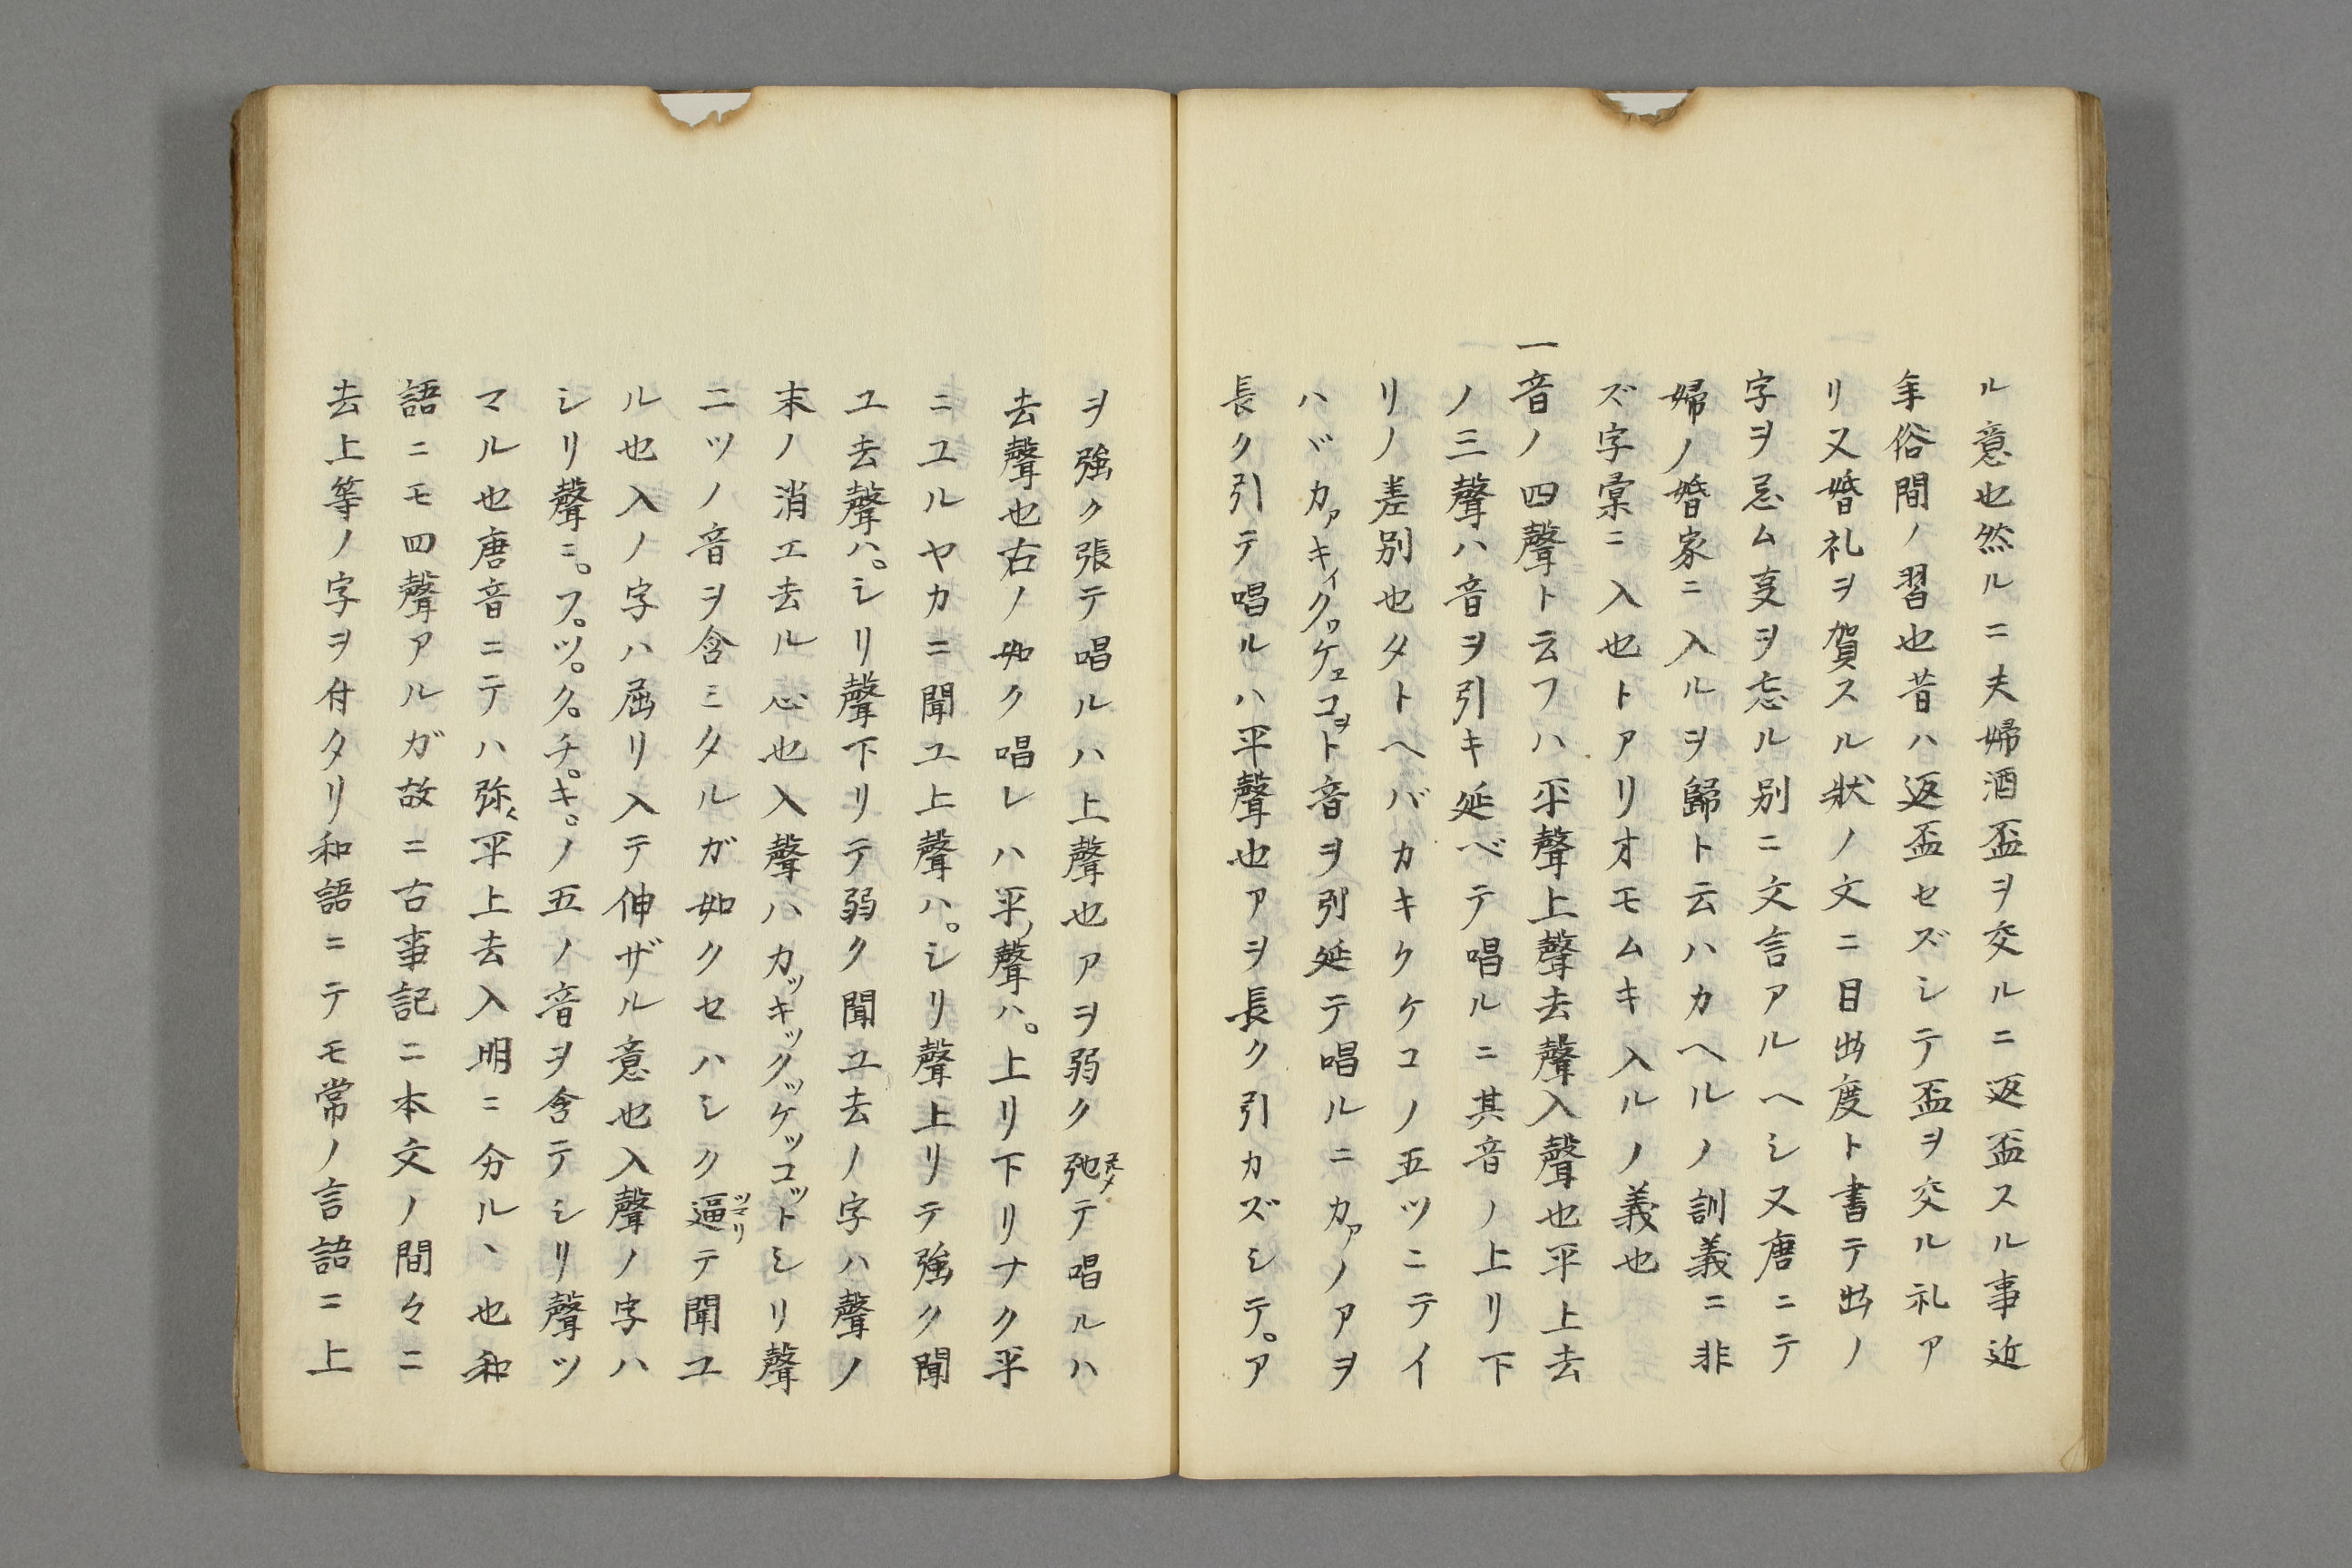 ル意也然ルニ夫婦酒盃ヲ交ルニ返盃スル事近
年俗間ノ習也昔ハ返盃セズシテ盃ヲ交ル礼ア
リ又婚礼ヲ賀スル状ノ文ニ目出度ト書テ出ノ
字ヲ忌ム㕝ヲ忘ル別ニ文言アルヘシ又唐ニテ
婦ノ婚家ニ入ルヲ歸ト云ハカヘルノ訓義ニ非
ズ字彙ニ入也トアリオモムキ入ルノ義也
一音ノ四聲ト云フハ平聲上聲去聲入聲也平上去
ノ三聲ハ音ヲ引キ延ベテ唱ルニ其音ノ上リ下
リノ差別也タトヘバカキクケコノ五ツニテイ
ハヾカァキィクゥケェコヲト音ヲ引延テ唱ルニカァノアヲ
長ク引テ唱ルハ平聲也アヲ長ク引カズシテ。ア
ヲ強ク張テ唱ルハ上聲也アヲ弱ク弛テ唱ルハ
去聲也右ノ如ク唱レハ平ノ聲ハ。上リ下リナク平
ニユルヤカニ聞ユ上聲ハ。シリ聲上リテ強ク聞
ユ去聲ハ。シリ聲下リテ弱ク聞ユ去ノ字ハ聲ノ
末ノ消エ去ル心也入聲ハカッキックッケッコットシリ聲
二ツノ音ヲ含ミタルガ如クセハシク逼ツマリテ聞ユ
ル也入ノ字ハ屈リ入テ伸ザル意也入聲ノ字ハ
シリ聲ニ。フ。ツ。ク。チ。キ。ノ五ノ音ヲ含テシリ聲ツ
マル也唐音ニテハ弥〻平上去入明ニ分ル、也和
語ニモ四聲アルガ故ニ古事記ニ本文ノ間々ニ
去上等ノ字ヲ付タリ和語ニテモ常ノ言語ニ上